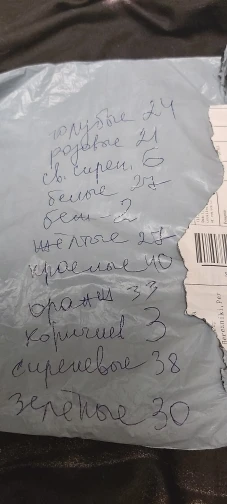 голубые 24
розовые 21
св. сирен. 5
белые 27
беж - 2
жёлтые 27
красные 40
оранж 33
коричнев 3
сиреневые 38
зелёные 30